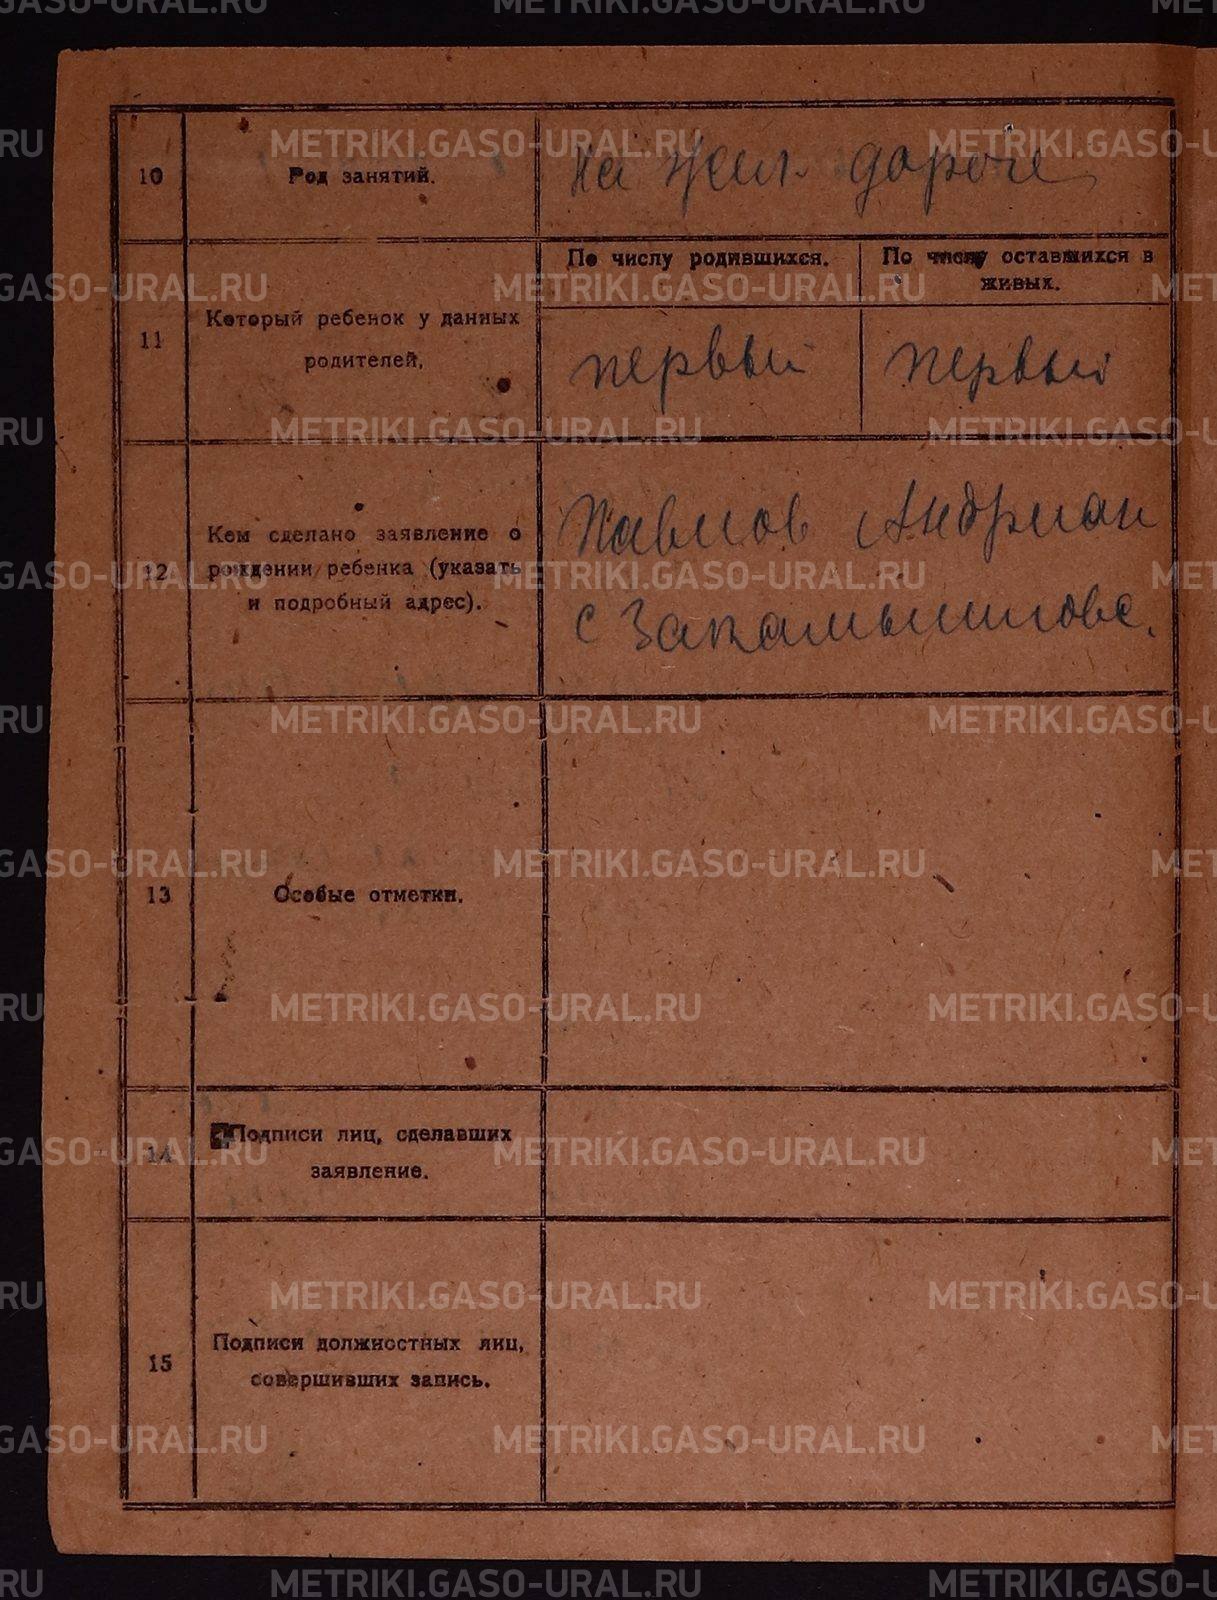 10
Род занятий.
на жел. дороге
11
Который ребенок у данных
родителей,
По числу родившихся.
По числу оставшихся в
живых.
первый
первый
12
Кем сделано заявление о
рождении ребенка (указать
и подробный адрес).
Павлов Андриан
с
13
Особые отметки.
14
Подписи лиц, сделавших
заявление.
15
Подписи должностных лиц,
совершивших запись.
METRIKI.GASO-URAL.RU